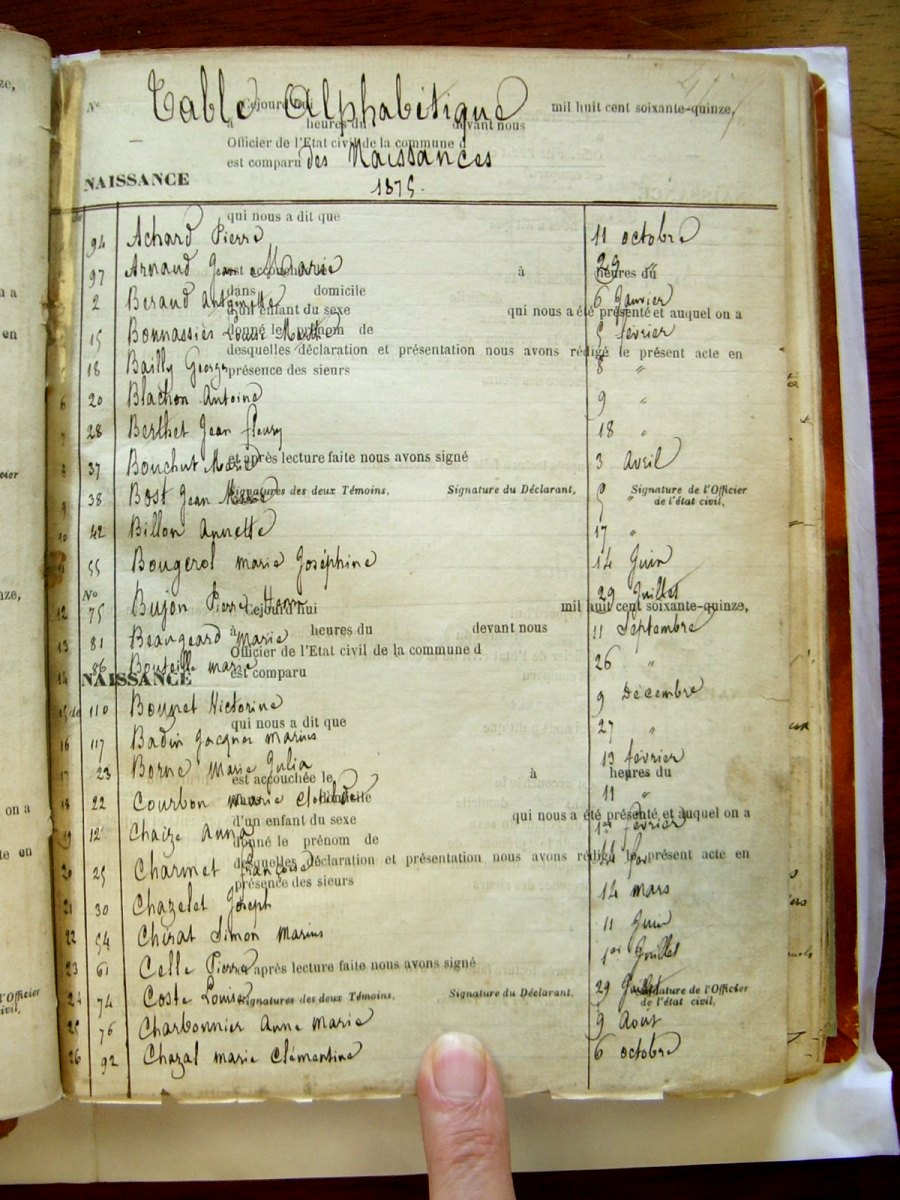 Nº Cejourd'hui mil huit cent soixante-quinze,
Table Alphabétique
à heures du devant nous
Officier de l'Etat civil de la commune d
est comparu
des Naissances
NAISSANCE
1875.
qui nous a dit que
94 Achard Pierre 11 octobre
97 Arnaud Jean Marie 29 "
est accouchée le à heures du
dans domicile
2 Beraud Antoinette 6 Janvier
d'un enfant du sexe qui nous a été présenté et auquel on a
15 Bonnassiès Louise Marthe 5 février
donné le prénom de
desquelles déclaration et présentation nous avons rédigé le présent acte en
18 Bailly Georges 8 "
présence des sieurs
6 20 Blachon Antoine 9 "
7 28 Berthet Jean fleury 18 "
8 37 Bouchut Marie 3 Avril
et après lecture faite nous avons signé
9 38 Bost Jean 5 "
Signatures des deux Témoins, Signature du Déclarant, Signature de l'Officier
de l'état civil,
10 42 Billon Annette 17 "
11 55 Bougerol marie Joséphine 14 Juin
Nº Cejourd'hui mil huit cent soixante-quinze,
12 75 Bujon Pierre 29 Juillet
à heures du devant nous
13 81 Beaugeard Marie 11 Septembre
Officier de l'Etat civil de la commune d
14 86 Bouteille marie 26 "
NAISSANCE
est comparu
15 110 Bonnet Victorine 9 Décembre
qui nous a dit que
16 117 Badin Jacques Marius 27 "
17 23 Borne Marie Julia 13 février
est accouchée le à heures du
18 22 Courbon marie Clotilde 11 "
domicile
d'un enfant du sexe qui nous a été présenté et auquel on a
19 12 Chaize Anna 1er février
donné le prénom de
desquelles déclaration et présentation nous avons rédigé le présent acte en
20 25 Charmet françoise
présence des sieurs
21 30 Chazelet Joseph 12 mars
22 54 Chirat Simon Marius 11 Juin
23 61 Celle Pierre 1er Juillet
et après lecture faite nous avons signé
24 74 Coste Louise 29 Juillet
Signatures des deux Témoins, Signature du Déclarant, Signature de l'Officier
de l'état civil,
25 76 Charbonnier Anne Marie 9 Août
26 92 Chazal marie Clémentine 6 octobre